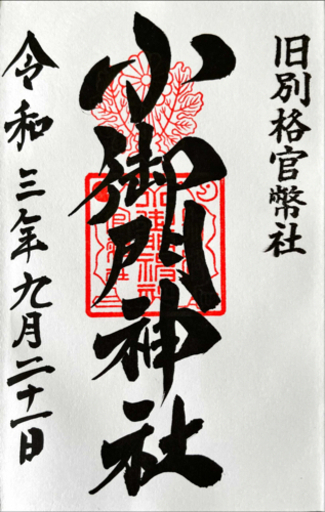 旧別格官幣社
小御門神社
令和三年九月二十一日